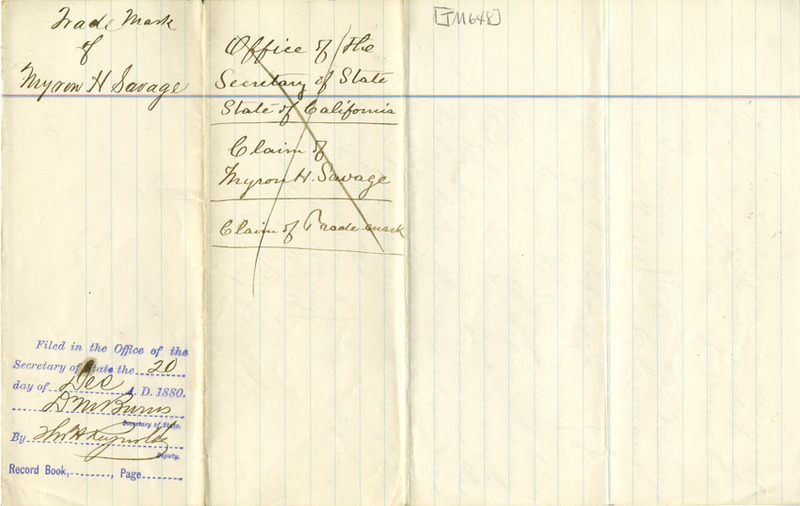 Trade Mark
of
Myron H Savage
Filed in the Office of the
Secretary of State the 20
day of Dec A. D. 1880.
D M Burns
Secretary of State.
By Thos H Reynolds
Deputy.
Record Book, Page
Office of the
Secretary of State
State of California
Claim of
Myron H. Savage
Claim of Trade-mark
[TM648]